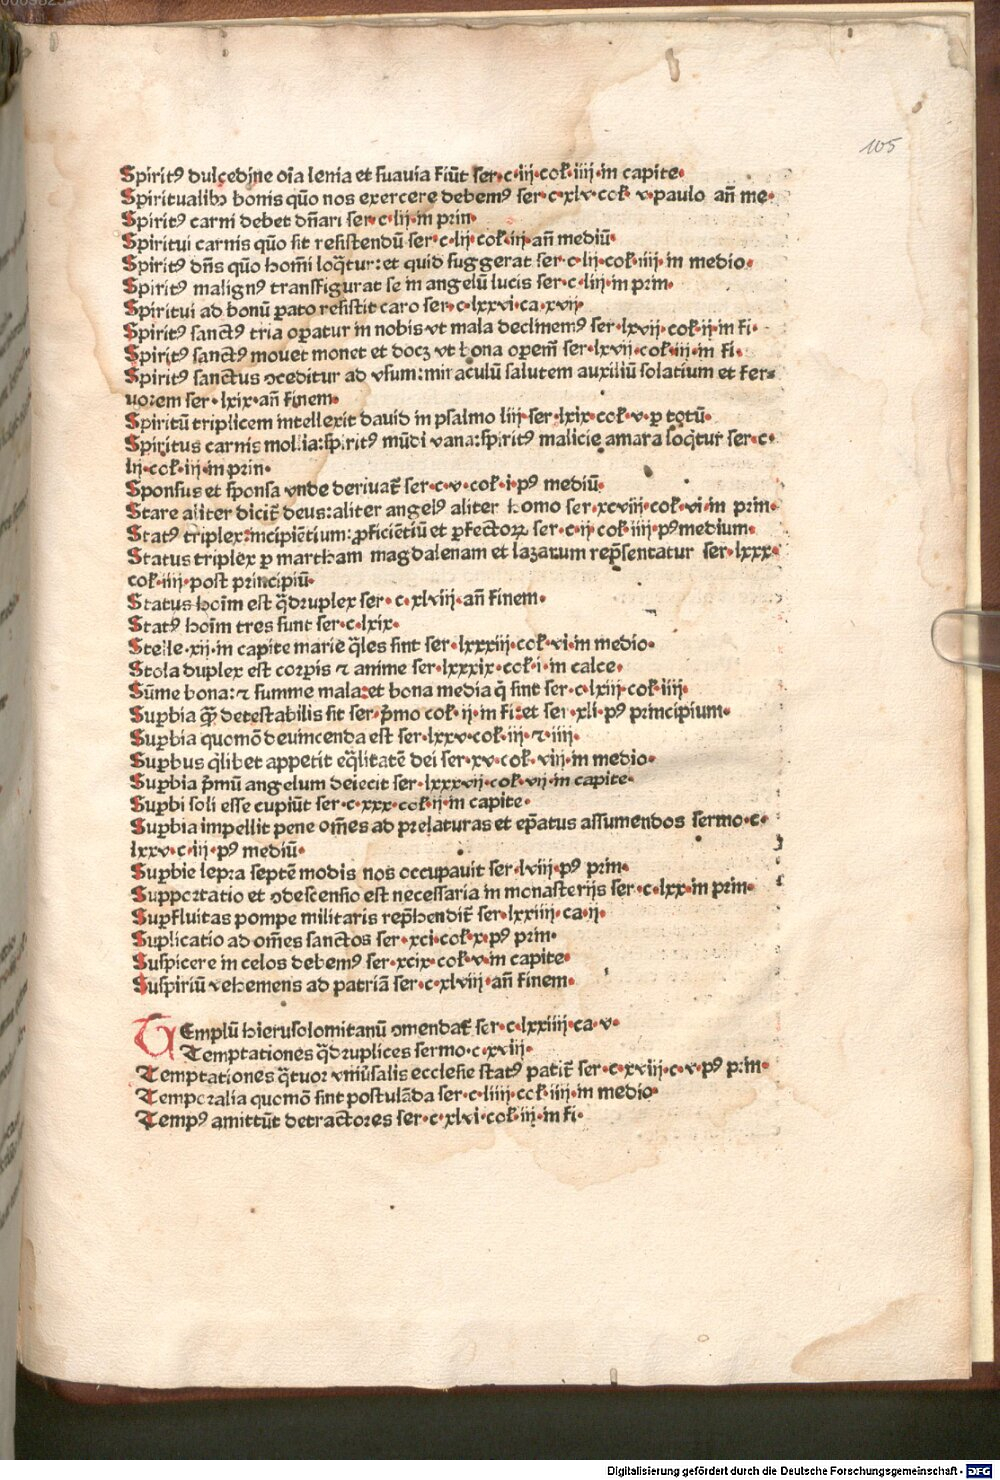 105
Spiritꝰ dulcedine oĩa lenia et suauia fiũt ser·c·iij·col·iiij·in capite·
Spiritualibꝫ bonis quõ nos exercere debemꝰ ser·c·xlv·col·v·paulo añ me·
Spiritꝰ carni debet dñari ser·c·lij·in prin·
Spiritui carnis quõ sit resistendũ ser·c·lij·col·iij·añ mediũ·
Spiritꝰ dñs quõ homĩ loq̃tur: et quid suggerat ser·c·lij·col·iiij·in medio·
Spiritꝰ malignꝰ transfigurat se in angelũ lucis ser·c·liij·in prin·
Spiritui ad bonũ ꝑato resistit caro ser·c·lxxvi·ca·xvij·
Spiritꝰ sanctꝰ tria oꝑatur in nobis vt mala declinemꝰ ser·lxvij·col·ij·in fi·
Spiritꝰ sanctꝰ mouet monet et docꝫ vt bona oꝑem̃ ser·lxvij·col·iij·in fi·
Spiritꝰ sanctus ↄceditur ad vsum: miraculũ salutem auxiliũ solatium et fer-
uorem ser·lxix·añ finem·
Spiritũ triplicem intellexit dauid in psalmo liij·ser·lxix·col·v·ꝑ totũ·
Spiritus carnis mollia: spiritꝰ mũdi vana: spiritꝰ malicie amara loq̃tur ser·c·
lij·col·iij·in prin·
Sponsus et sponsa vnde deriuat̃ ser·c·v·col·i·pꝰ mediũ·
Stare aliter dicit̃ deus: aliter angelꝰ aliter homo ser·xcviij·col·vi·in prin·
Statꝰ triplex: incipiẽtium: ꝓficiẽtiũ et ꝑfectoꝝ ser·c·ij·col·iiij·pꝰ medium·
Status triplex ꝑ martham magdalenam et lazarum rep̃sentatur ser·lxxx·
col·iiij·post principiũ·
Status hoĩm est q̃druplex ser·c·xlviij·añ finem·
Statꝰ hoĩm tres sunt ser·c·lxix·
Stelle·xij·in capite marie q̃les sint ser·lxxxiij·col·vi·in medio·
Stola duplex est corꝑis ⁊ anime ser·lxxxix·col·i·in calce·
Sũme bona: ⁊ summe mala: et bona media q̃ sint ser·c·lxiij·col·iiij·
Suꝑbia qꝫ̃ detestabilis sit ser·p̃mo col·ij·in fi: et ser·xli·pꝰ principium·
Suꝑbia quomõ deuincenda est ser·lxxv·col·iij·⁊·iiij·
Suꝑbus q̃libet appetit eq̃litatẽ dei ser·xv·col·viij·in medio·
Suꝑbia p̃mũ angelum deiecit ser·lxxxvij·col·vij·in capite·
Suꝑbi soli esse cupiũt ser·c·xxx·col·ij·in capite·
Suꝑbia impellit pene om̃es ad prelaturas et ep̃atus assumendos sermo·c·
lxxv·c·iij·pꝰ mediũ·
Suꝑbie lepra septẽ modis nos occupauit ser·lviij·pꝰ prin·
Supportatio et ↄdescensio est necessaria in monasterijs ser·c·lxx·in prin·
Suꝑfluitas pompe militaris rep̃hendit̃ ser·lxxiiij·ca·ij·
Suplicatio ad om̃es sanctos ser·xci·col·x·pꝰ prin·
Suspicere in celos debemꝰ ser·xcix·col·v·in capite·
Suspiriũ vehemens ad patriã ser·c·xlviij·añ finem·
TEmplũ hierusolomitanũ ↄmendat̃ ser·c·lxxiiij·ca·v·
Temptationes q̃druplices sermo·c·xviij·
Temptationes q̃tuor vniũsalis ecclesie statꝰ patit̃ ser·c·xviij·c·v·pꝰ prin·
Temporalia quomõ sint postulãda ser·c·liiij·col·iiij·in medio·
Tempꝰ amittũt detractores ser·c·xlvi·col·iij·in fi·
Digitalisierung gefördert durch die Deutsche Forschungsgemeinschaft - DFG